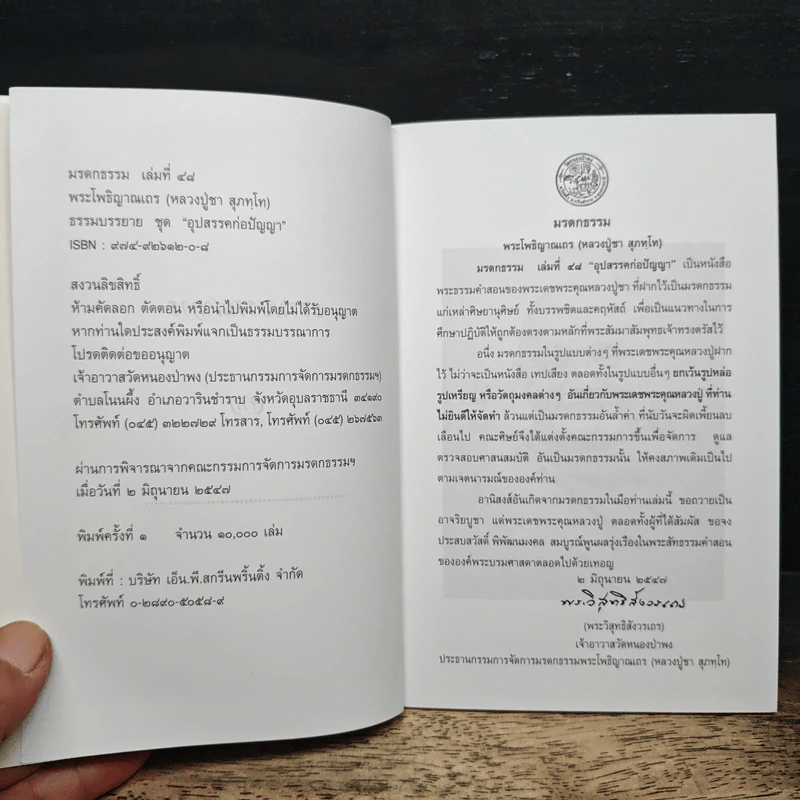 มรดกธรรม เล่มที่ ๔๘
พระโพธิญาณเถร (หลวงปู่ชา สุภทฺโท)
ธรรมบรรยาย ชุด "อุปสรรคก่อปัญญา"
ISBN : ๙๗๔-๙๒๖๑๒-๐-๘
สงวนลิขสิทธิ์
ห้ามคัดลอก ตัดตอน หรือนำไปพิมพ์โดยไม่ได้รับอนุญาต
หากท่านใดประสงค์พิมพ์แจกเป็นธรรมบรรณาการ
โปรดติดต่อขออนุญาต
เจ้าอาวาสวัดหนองป่าพง (ประธานกรรมการจัดการมรดกธรรมฯ)
ตำบลโนนผึ้ง อำเภอวารินชำราบ จังหวัดอุบลราชธานี ๓๔๑๙๐
โทรศัพท์ (๐๔๕) ๓๒๒๗๒๙ โทรสาร, โทรศัพท์ (๐๔๕) ๒๖๗๕๖๓
ผ่านการพิจารณาจากคณะกรรมการจัดการมรดกธรรมฯ
เมื่อวันที่ ๒ มิถุนายน ๒๕๔๗
พิมพ์ครั้งที่ ๑ จำนวน ๑๐,๐๐๐ เล่ม
พิมพ์ที่ : บริษัท เอ็น.พี.สกรีนพริ้นติ้ง จำกัด
โทรศัพท์ ๐-๒๘๙๐-๕๐๕๘-๙
มรดกธรรม
พระโพธิญาณเถร (หลวงปู่ชา สุภทฺโท)
มรดกธรรม เล่มที่ ๔๘ "อุปสรรคก่อปัญญา" เป็นหนังสือ
พระธรรมคำสอนของพระเดชพระคุณหลวงปู่ชา ที่ฝากไว้เป็นมรดกธรรม
แก่เหล่าศิษยานุศิษย์ ทั้งบรรพชิตและคฤหัสถ์ เพื่อเป็นแนวทางในการ
ศึกษาปฏิบัติให้ถูกต้องตรงตามหลักที่พระสัมมาสัมพุทธเจ้าทรงตรัสไว้
อนึ่ง มรดกธรรมในรูปแบบต่างๆ ที่พระเดชพระคุณหลวงปู่ฝาก
ไว้ ไม่ว่าจะเป็นหนังสือ เทปเสียง ตลอดทั้งในรูปแบบอื่นๆ ยกเว้นรูปหล่อ
รูปเหรียญ หรือวัตถุมงคลต่างๆ อันเกี่ยวกับพระเดชพระคุณหลวงปู่ ที่ท่าน
ไม่ยินดีให้จัดทำ ล้วนแต่เป็นมรดกธรรมอันล้ำค่า ที่นับวันจะผิดเพี้ยนลบ
เลือนไป คณะศิษย์จึงได้แต่งตั้งคณะกรรมการขึ้นเพื่อจัดการ ดูแล
ตรวจสอบศาสนสมบัติ อันเป็นมรดกธรรมนั้น ให้คงสภาพเดิมเป็นไป
ตามเจตนารมณ์ขององค์ท่าน
อานิสงส์อันเกิดจากมรดกธรรมในมือท่านเล่มนี้ ขอถวายเป็น
อาจริยบูชา แด่พระเดชพระคุณหลวงปู่ ตลอดทั้งผู้ที่ได้สัมผัส ขอจง
ประสบสวัสดิ์ พิพัฒนมงคล สมบูรณ์พูนผลรุ่งเรืองในพระสัทธรรมคำสอน
ขององค์พระบรมศาสดาตลอดไปด้วยเทอญ
๒ มิถุนายน ๒๕๔๗
พระวิสุทธิสังวรเถร
(พระวิสุทธิสังวรเถร)
เจ้าอาวาสวัดหนองป่าพง
ประธานกรรมการจัดการมรดกธรรมพระโพธิญาณเถร (หลวงปู่ชา สุภทฺโท)